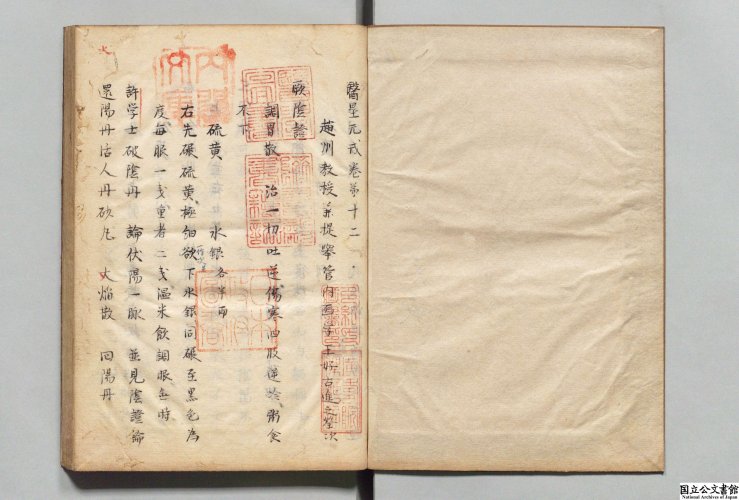 醫壘元戎卷第十二
趙州教授兼提舉管內醫學王好古進之坐次
厥陰證
調胃散 治一切吐逆傷寒四肢逆冷粥食
不下
硫黄 水銀各半兩
右先碾硫黄極細欲下水銀同碾至黒色為
度每服一戔重者二戔温米飲調服無時
許学士破陰丹 論伏陽一脉 並見陰證論
還陽丹 古人丹砂丸 火焰散 回陽丹
国立公文書館
National Archives of Japan